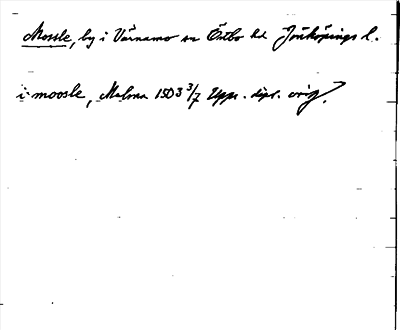 Mossle, by i Värnamo sn Östbo hd Jönköpings l.
i moosle, Malma 1503 3/7 Upps. dipl. orig.